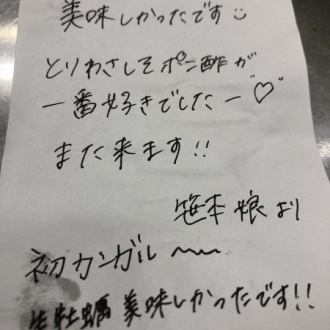 美味しかったです☺
とりわさしそポン酢が
一番好きでしたー♡
また来ます!!
笹本 娘より
初カンガルー〜〜
生牡蠣 美味しかったです!!